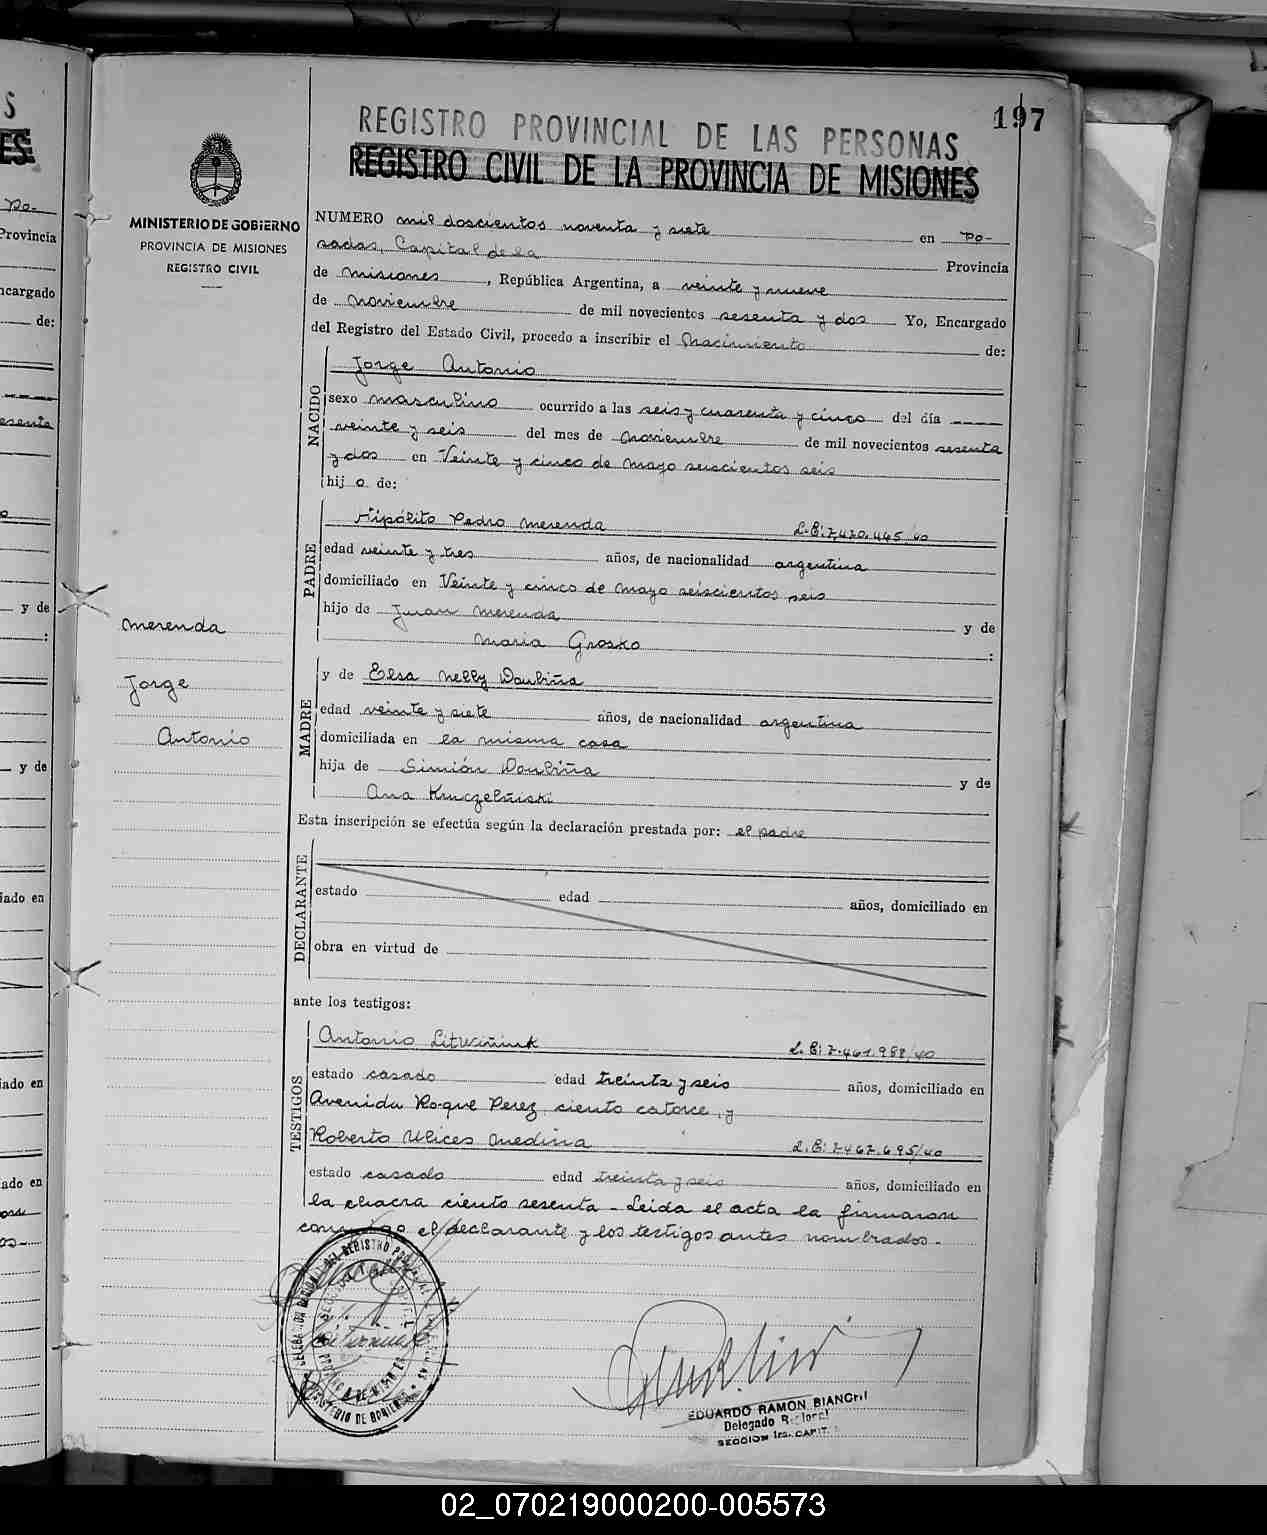 197
REGISTRO PROVINCIAL DE LAS PERSONAS
REGISTRO CIVIL DE LA PROVINCIA DE MISIONES
MINISTERIO DE GOBIERNO
PROVINCIA DE MISIONES
REGISTRO CIVIL
NUMERO mil doscientos noventa y siete en Po-
sadas, Capital de la Provincia
de Misiones, República Argentina, a veinte y nueve
de Noviembre de mil novecientos sesenta y dos Yo, Encargado
del Registro del Estado Civil, procedo a inscribir el Nacimiento de:
NACIDO
Jorge Antonio
sexo masculino ocurrido a las seis y cuarenta y cinco del día
veinte y seis del mes de Noviembre de mil novecientos sesenta
y dos en Veinte y cinco de mayo seiscientos seis
hij o de:
PADRE
Hipólito Pedro Merenda L.E: 7,420,445/40
edad veinte y tres años, de nacionalidad argentina
domiciliado en Veinte y cinco de mayo seiscientos seis
hijo de Juan Merenda y de
Maria Grosko :
Merenda
Jorge
Antonio
MADRE
y de Elsa Nelly Doubiña
edad veinte y siete años, de nacionalidad argentina
domiciliada en la misma casa
hija de Simión Doubiña y de
Ana
Esta inscripción se efectúa según la declaración prestada por: el padre
DECLARANTE
estado edad años, domiciliado en
obra en virtud de
ante los testigos:
TESTIGOS
Antonio Litwiñiuk L.E: 7.461.988/40
estado casado edad treinta y seis años, domiciliado en
Avenida Roque Perez, ciento catorce, y
Roberto Ulices Medina L.E: 7.467.695/40
estado casado edad treinta y seis años, domiciliado en
la chacra ciento sesenta - Leida el acta la firmaron
conmigo el declarante y los testigos antes nombrados.-
EDUARDO RAMON BIANCHI
Delegado Regional
SECCION 1ra. CAPIT.
02_070219000200-005573